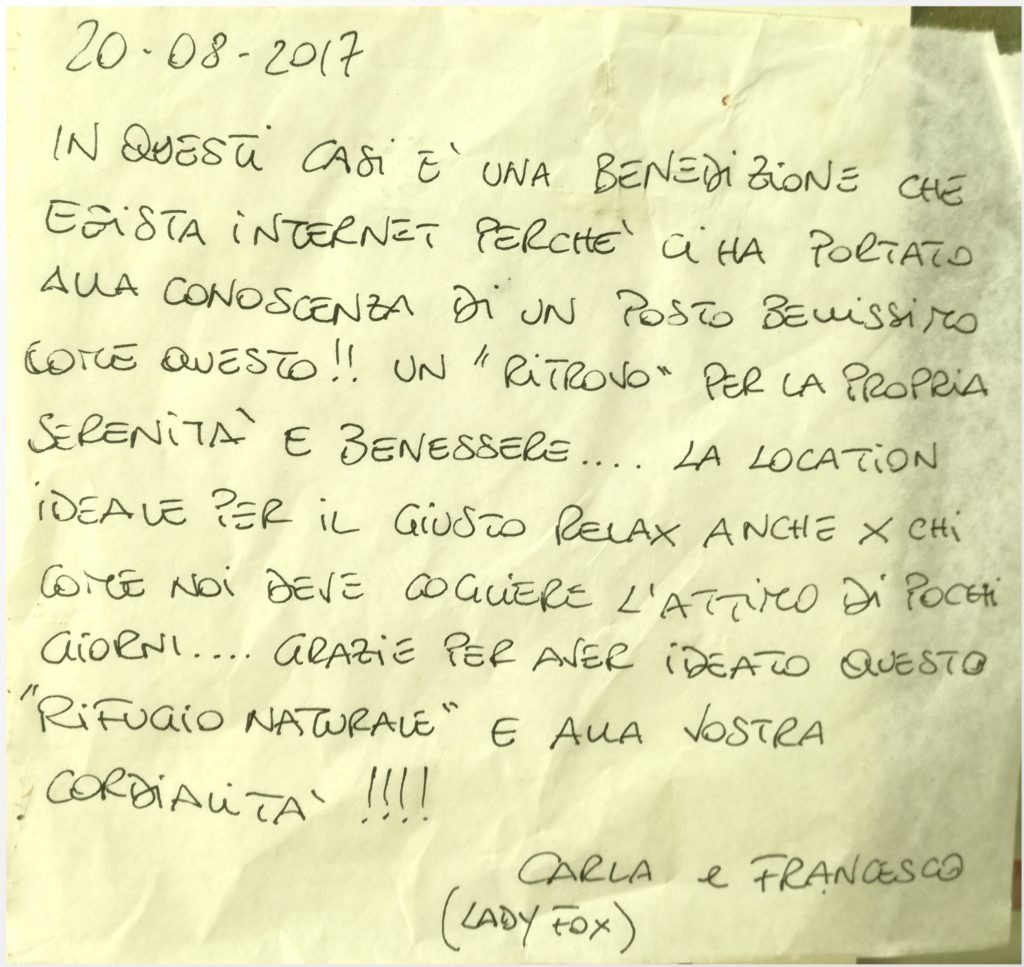 20-08-2017
IN QUESTi CASi E' UNA BENEDiZiONE CHE
ESiSTA iNTERNET PERCHE' Ci HA PORTATO
ALLA CONOSCENZA Di UN POSTO BELLiSSiMO
COME QUESTO!! UN "RiTROVO" PER LA PROPRiA
SERENiTA' E BENESSERE.... LA LOCATiON
iDEALE PER iL GiUSTO RELAX ANCHE X CHi
COME NOi DEVE COGLiERE L'ATTiMO Di POCHi
GiORNi.... GRAZiE PER AVER iDEATO QUESTO
"RiFUGiO NATURALE" E ALLA VOSTRA
CORDiALiTA' !!!!
CARLA e FRANCESCO
(LADY FOX)